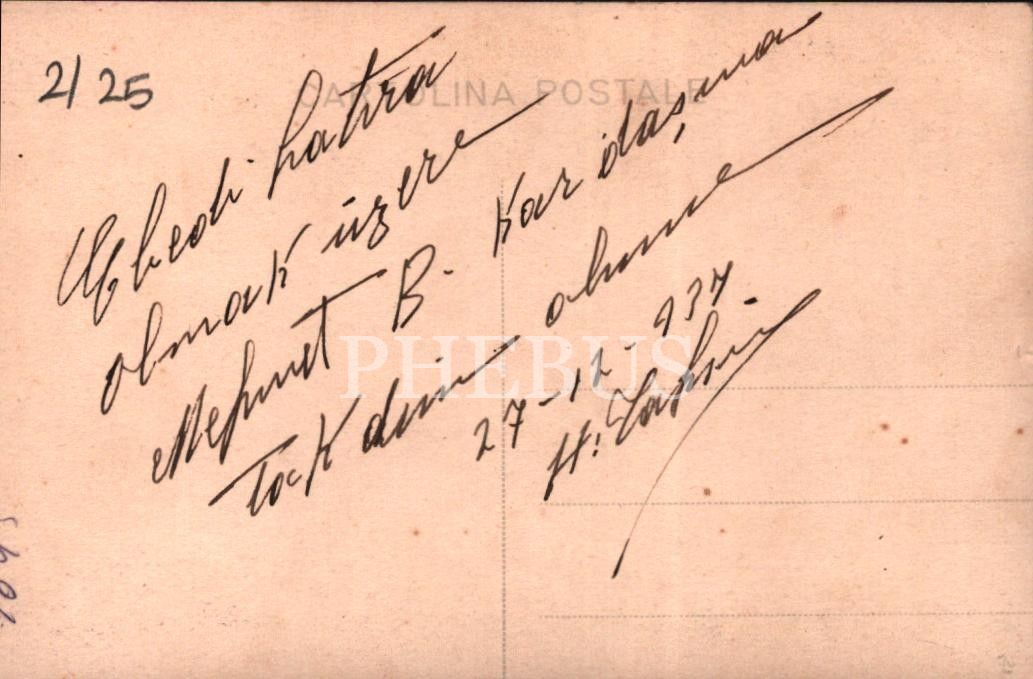 2/25
CARTOLINA POSTALE
Ebedi hatıra
olmak üzere
Mehmet B. Kardaşıma
Takdim olunur
27-12-937
H.
PHEBUS